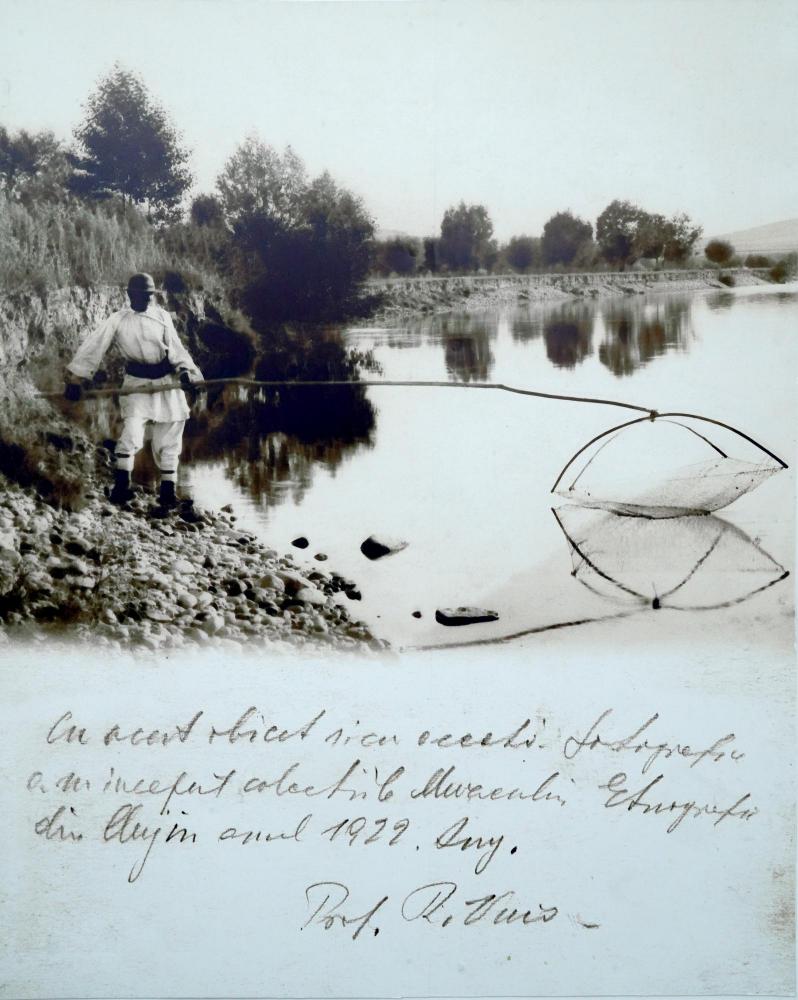 Cu acest obiect si cu această fotografie
am inceput colectiile Muzeului Etnografic
din Cluj in anul 1922.
Prof. R. Vuia